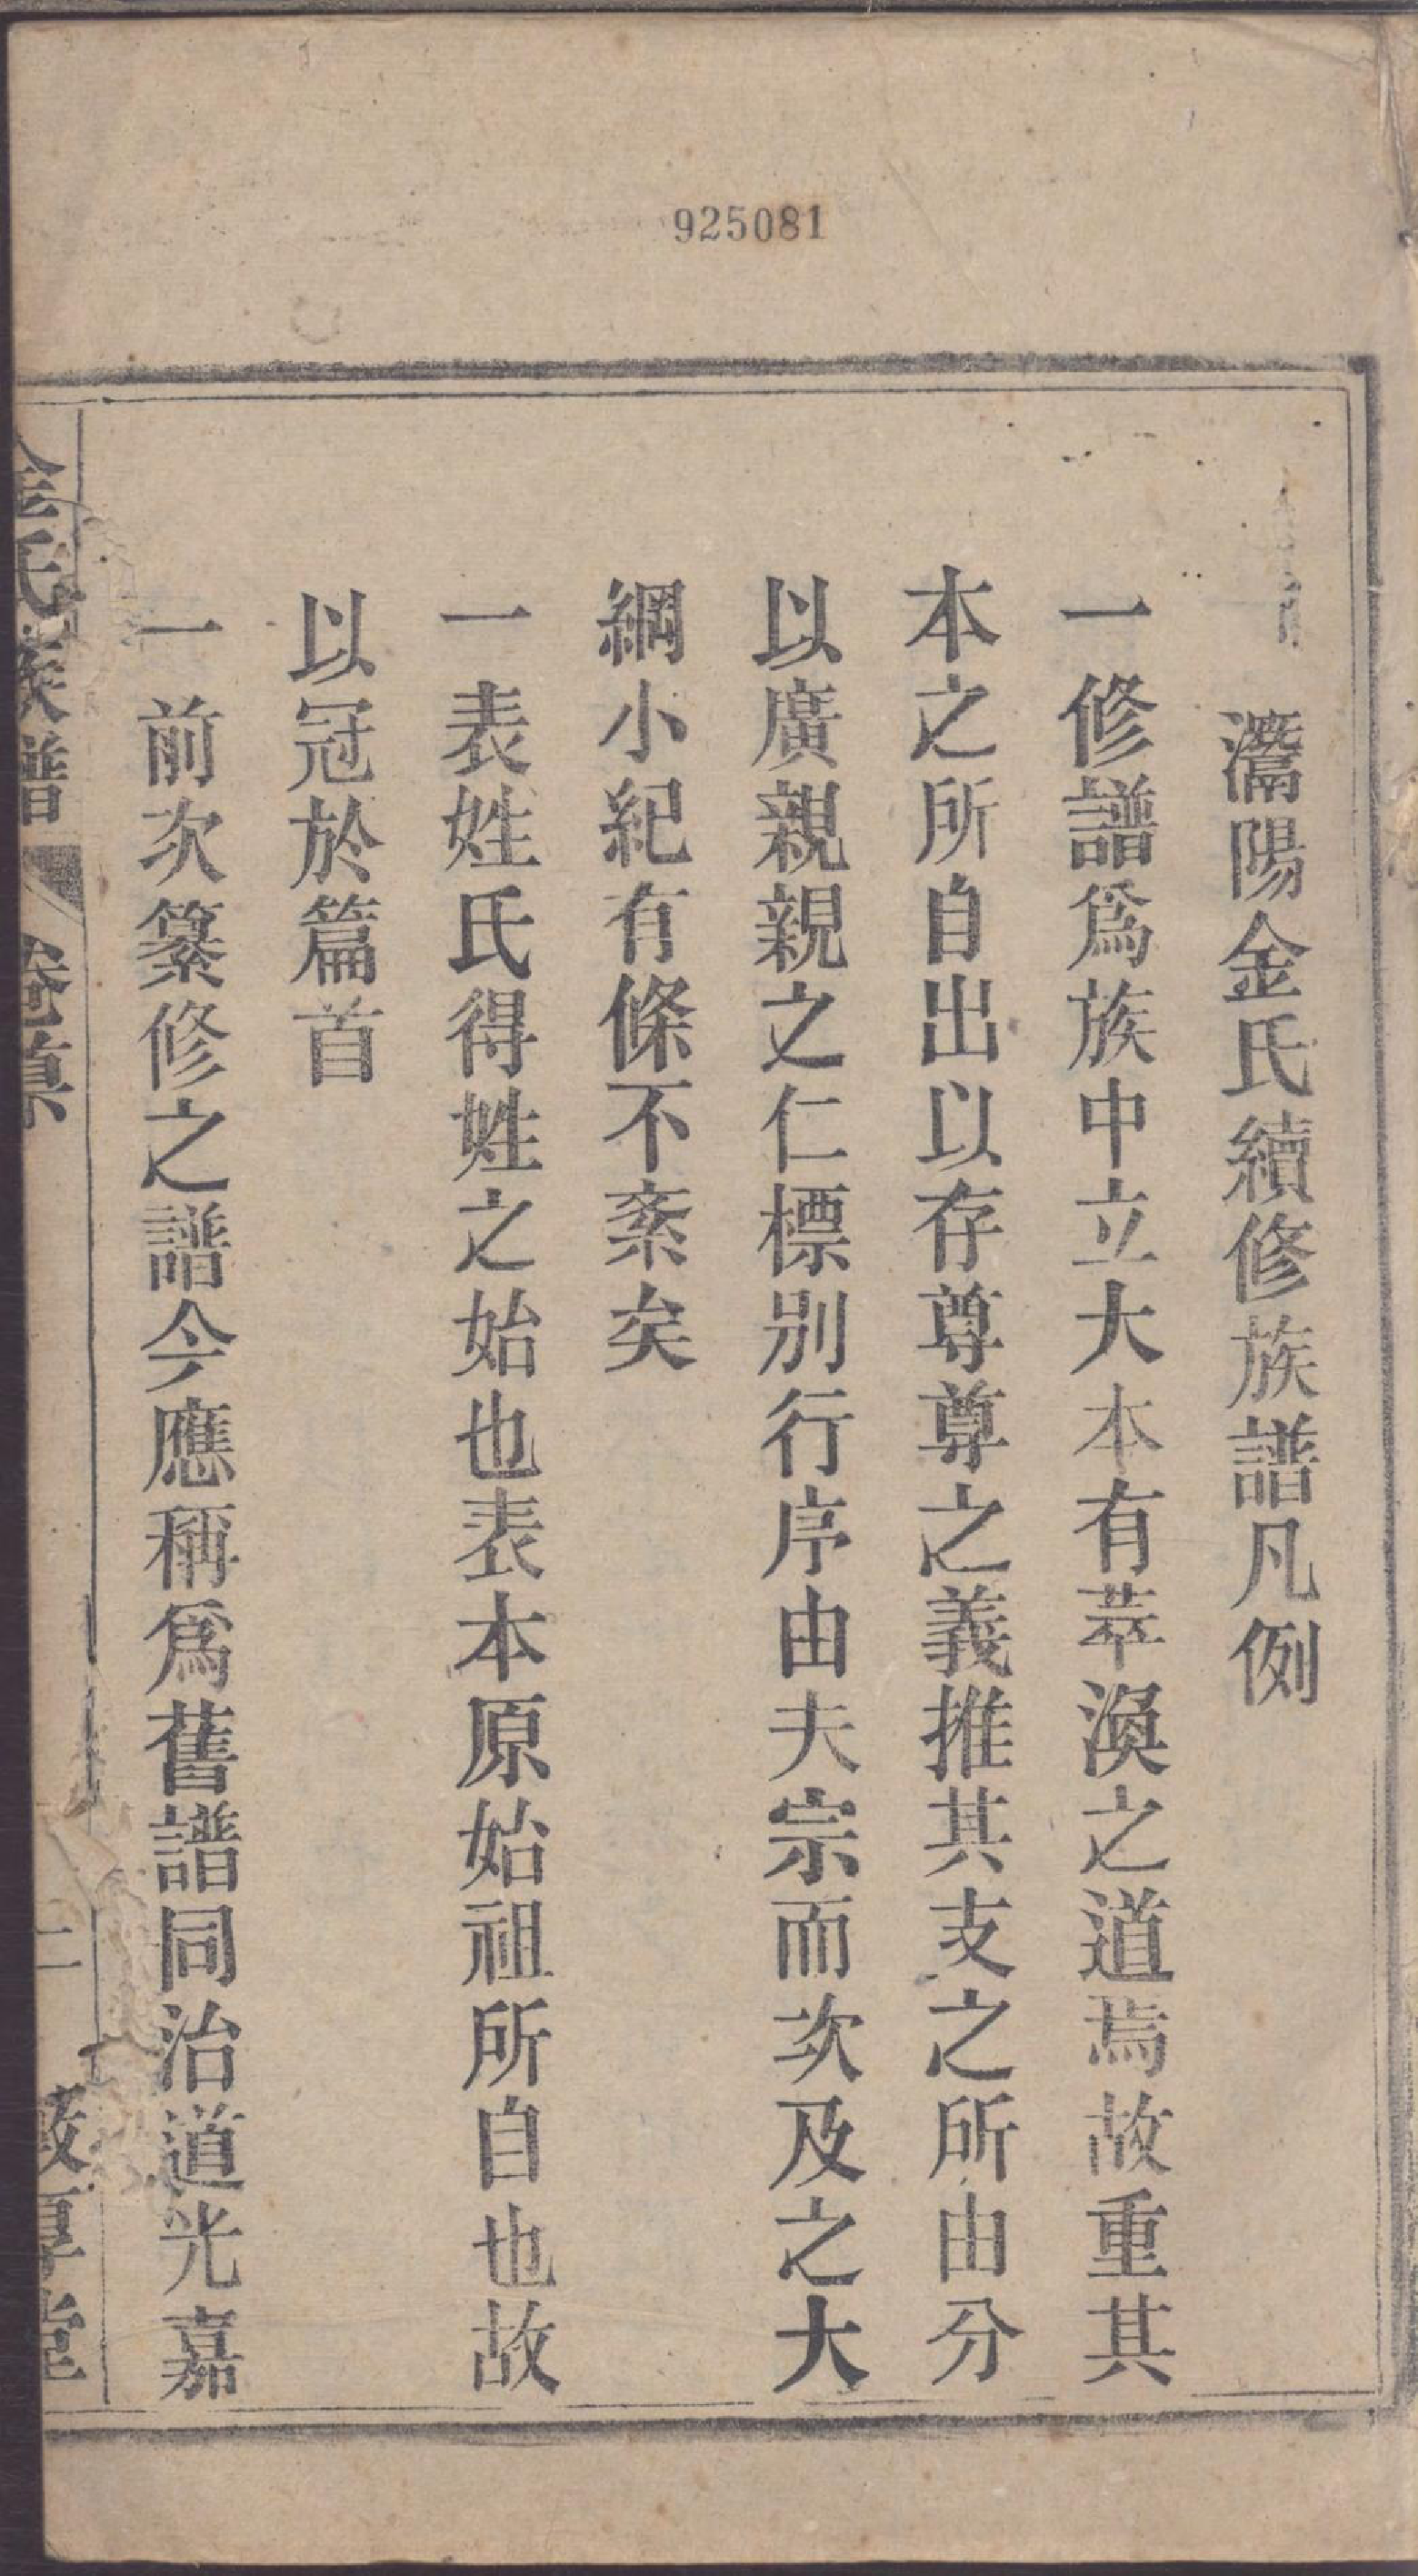 925081
灊陽金氏續修族譜凡例
一修譜爲族中立大本有萃渙之道焉故重其
本之所自出以存尊尊之義推其支之所由分
以廣親親之仁標別行序由夫宗而次及之大
綱小紀有條不紊矣
一表姓氏得姓之始也表本原始祖所自也故
以冠於篇首
一前次纂修之譜今應稱爲舊譜同治道光嘉
金氏族譜 卷首 一 敦厚堂